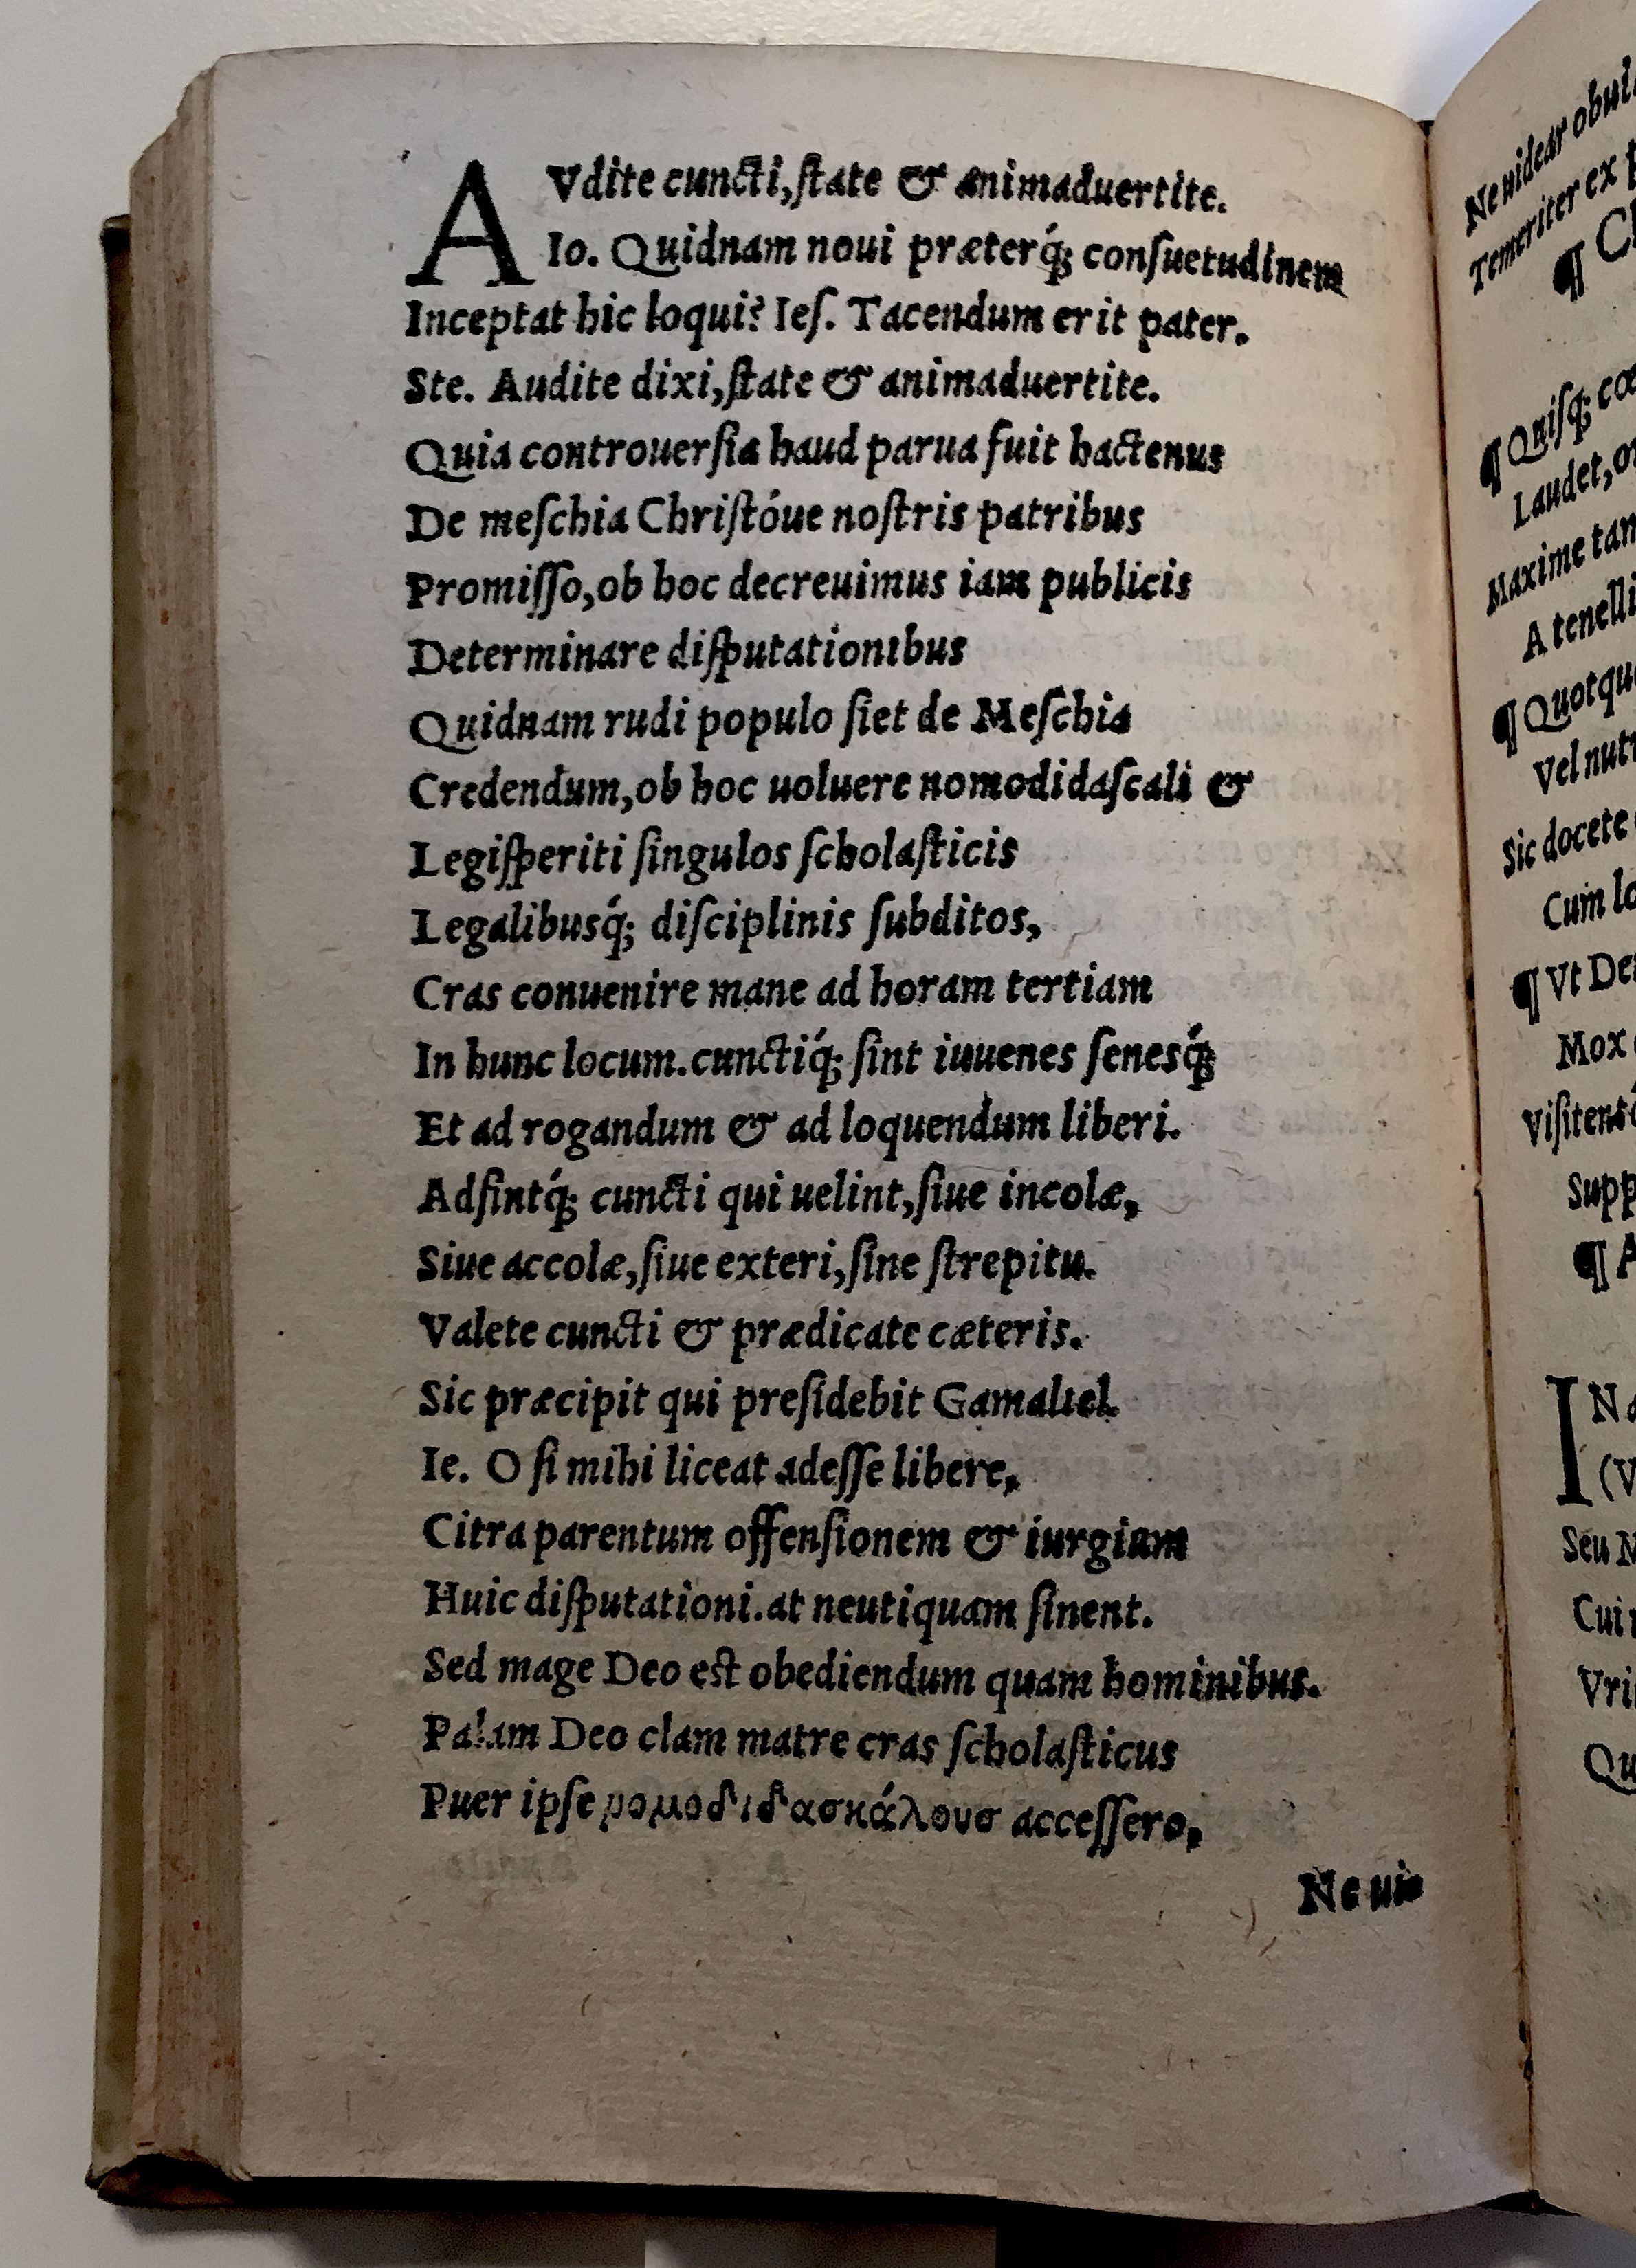 AVdite cuncti, ſtate & animaduertite.
Io. Quidnam noui præterq́; conſuetudinem
Inceptat hic loqui? Ieſ. Tacendum erit pater.
Ste. Audite dixi, ſtate & animaduertite.
Quia controuerſia haud parua fuit hactenus
De meſchia Chriſtóue noſtris patribus
Promiſſo, ob hoc decreuimus iam publicis
Determinare diſputationibus
Quidnam rudi populo ſiet de Meſchia
Credendum, ob hoc uoluere nomodidaſcali &
Legiſperiti ſingulos ſcholaſticis
Legalibusq́; diſciplinis ſubditos,
Cras conuenire mane ad horam tertiam
In hunc locum. cunctiq́; ſint iuuenes ſenesq́;
Et ad rogandum & ad loquendum liberi.
Adſintq́; cuncti qui uelint, ſiue incolæ,
Siue accolæ, ſiue exteri, ſine ſtrepitu.
Valete cuncti & prædicate cæteris.
Sic præcipit qui preſidebit Gamaliel.
Ie. O ſi mihi liceat adeſſe libere,
Citra parentum offenſionem & iurgium
Huic diſputationi. at neutiquam ſinent.
Sed mage Deo eſt obediendum quam hominibus.
Palam Deo clam matre cras ſcholaſticus
Puer ipſe νομοδιδασκάλουσ acceſſero,
Ne uie
Ne uidear
Temeriter ex
¶
¶ Quiſq́;
Laudet,
Maxime
A tenelli
¶
Vel
Sic docete
Cum
¶ Vt
Mox
¶
IN
(V
Seu
Cui